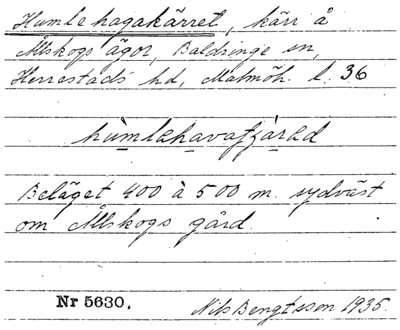 Humlehagakärret, kärr å
Ållskogs ägor, Baldringe sn,
Herrestads hd, Malmöh. l. 36
hùmlehavafjàred
Beläget 400 à 500 m. sydväst
om Ållskogs gård.
Nr 5630. Nils Bengtsson 1935.